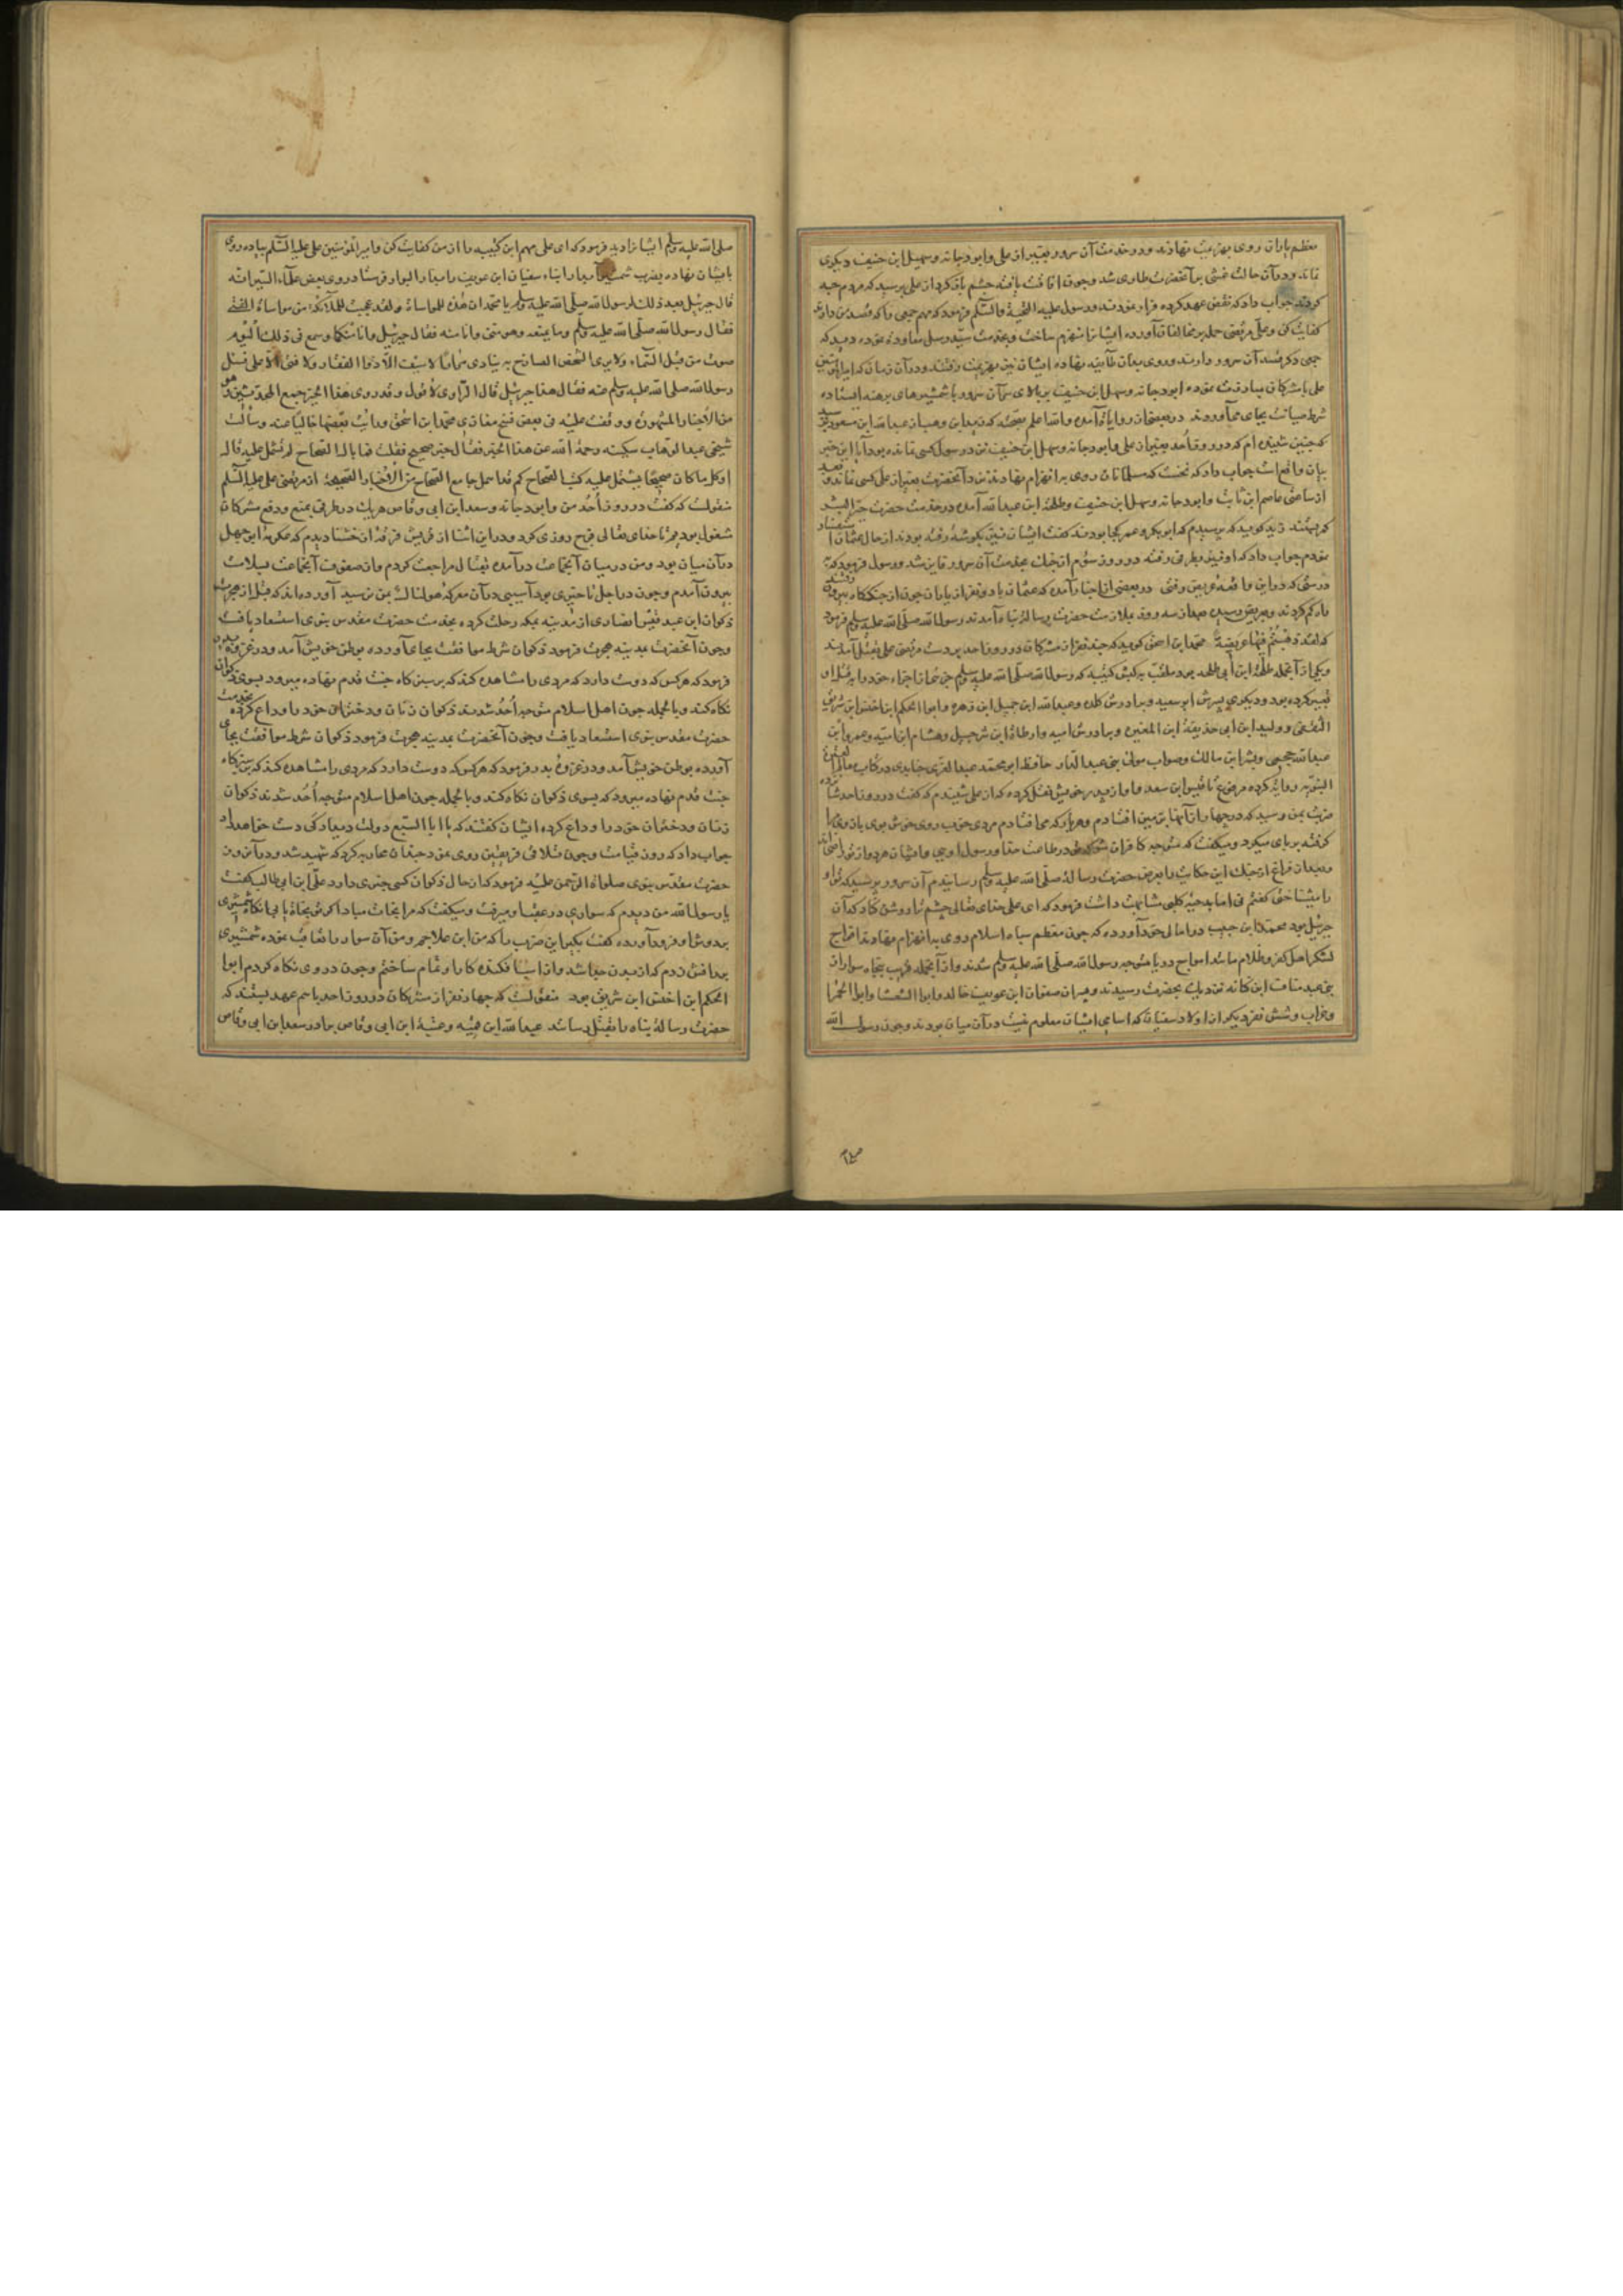 معظم یاران روی بهزیمت نهادند و در خدمت آن سرور بغیر از علی و ابو دجانه و سهیل ابن حنیف دیکری
نماند و در آن حالت غشی بر آنحضرت طاری شد و چون افاقت یافت چشم باز کرد از علی پرسید که مردم چه
کردند جواب داد که نقض عهد کرده فرار نمودند و رسول علیه التحیة والسلم فرمود که مهم جمعی را که قصد من دارند
کفایت کن و علی مرتضی حمله بر مخالفان آورده ایشانرا منهزم ساخت و بخدمت سید رسل معاودت نموده دید که
جمعی دکر قصد آن سرور دارند و روی بدان طایفه نهاده ایشان نیز بهزیمت رفتند و در آن زمان که امیر المؤمنین
علی با مشرکان مبادرت نموده ابو دجانه و سهل ابن حنیف بر بالای سر آن سرور با شمشیرهای برهنه ایستاده
شرط صیانت بجای می آوردند در بعضی از روایات آمده والله اعلم بصحته که زید ابن وهب از عبدالله ابن مسعود پرسید
که چنین شنیده ام که در روز احد بغیر از علی و ابو دجانه و سهل ابن حنیف نزد رسول کسی نمانده بود آیا این خبر
بیان واقع است جواب داد که نخست که مسلمانان روی به انهزام نهادند نزد آنحضرت بغیر از علی کسی نماند و بعد
از ساعتی عاصم ابن ثابت و ابو دجانه و سهل ابن حنیف و طلحه ابن عبدالله آمده در خدمت حضرت خیر البشر
کمر بستند زید کوید که پرسیدم که ابو بکر و عمر کجا بودند کفت ایشان نیز بکوشه رفته بودند از حال عثمان استفسار
نمودم جواب داد که او نیز بطرفی رفته در روز سوم از جنک بخدمت آن سرور فایز شد و رسول فرمود که
درستی که در این واقعه عریض رفتی در بعضی از اخبار آمده که عثمان با دو نفر از یاران چون از جنککاه بیرون رفتند
راه کم کردند و بعریض رسیده بعد از سه روز بملازمت حضرت رسالة پناه آمدند رسول الله صلی الله علیه وسلم فرمود
که لقد ذهبتم فیها عریضة محمد ابن اسحق کوید که چند نفر از مشرکان در روز احد بر دست مرتضی علی بقتل آمدند
ویکی از آنجمله طلحة ابن ابی طلحه بود ملقب به کبش کتیبه که رسول الله صلی الله علیه وسلم
تعبیر کرده بود و دیکری پسرش ابو سعید و برادرش کلده و عبدالله ابن جمیل ابن زهره و ابو الحکم ابن اخنس ابن شریق
الثقفی و ولید ابن ابی حذیفة ابن المغیره و برادرش امیه و ارطاة ابن شرحبیل و هشام ابن امیه و عمرو ابن
عبدالله جمحی و بشر ابن مالک و صواب مولی بنی عبد الدار حافظ ابو محمد عبد العزیز جنابدی در کتاب معالم العترة
النبویه روایة کرده مرفوع تا قیس ابن سعد و او از پدر خویش نقل کرده که از علی شنیدم که کفت در روز احد شانزده
ضربت بمن رسید که در چهار از آنها بر زمین افتادم و هر بار که می افتادم مردی خوب روی خوش بوی بازوی مرا
کرفته بر پای میکرد و میکفت که متوجه کافران شو که در طاعت خدا و رسول اویی و ایشان هر دو از تو راضی اند
و بعد از فراغ از جنک این حکایت را بعرض حضرت رسالة صلی الله علیه وسلم رسانیدم آن سرور پرسید که تو او
را میشناختی کفتم نی اما بدحیه کلبی مشابهت داشت فرمود که ای علی خدای تعالی چشم ترا روشن کناد که آن
جبرئیل بود محمد ابن حبیب در امالی خود آورده که چون معظم سپاه اسلام روی به انهزام نهادند افواج
لشکر اهل کفر و ظلام مانند امواج دریا متوجه رسول الله صلی الله علیه وسلم شدند و از آنجمله قریب پنجاه سوار از
بنی عبد مناف ابن کنانه نزدیک بحضرت رسیدند و پسران صفوان ابن عویف خالد و ابو الشعثا و ابو الحمرا
و غراب و شش نفر دیکر از اولاد سفیان که اسامی ایشان معلوم نیست در آن میان بودند و چون رسول الله
صلی الله علیه وسلم ایشانرا دید فرمود که ای علی مهم این کتیبه را از من کفایت کن و امیر المؤمنین علی علیه السلم پیاده روی
بایشان نهاده بضرب شمشیر آبدار ابناء سفیان ابن عویف را بدار البوار فرستاد روی بعض علماء السیر انه
قال جبرئیل بعد ذلک لرسول الله صلی الله علیه وسلم یا محمد ان هذه للمواساة و لقد عجبت للملائکة من مواساة الفتی
فقال رسول الله صلی الله علیه وسلم وما یمنعه وهو منی وانا منه فقال جبرئیل وانا منکما وسمع فی ذلک الیوم
صوت من قبل السماء ولا یری الشخص الصارخ به ینادی مرارا لا سیف الا ذوا الفقار ولا فتی الا علی فسئل
رسول الله صلی الله علیه وسلم عنه فقال هذا جبرئیل قال الراوی لا قول وقد روی هذا الخبر جمیع المحدثین وهو
من الاخبار المشهوره ووقفت علیه فی بعض نسخ مغازی محمد ابن اسحق ورایت بعضها خالیا عنه وسألت
شیخی عبد الوهاب سکینه رحمة الله عن هذا الخبر فقال خبر صحیح فقلت فما بال الصحاح لم تشتمل علیه قال
او کل ما کان صحیحا یشتمل علیه کتب الصحاح کم قد اهمل جامع الصحاح من الاخبار الصحیحة از مرتضی علی علیه السلم
منقولست که کفت در روز احد من و ابو دجانه و سعد ابن ابی وقاص هر یک در طرفی بمنع و دفع مشرکان
مشغول بودیم تا خدای تعالی فرج روزی کرد و در این اثنا از قریش فرقه از خشنا دیدم که عکرمه ابن ابی جهل
در آن میان بود و من در میان آنجماعت در آمده بقتال مراجعت کردم و از صفوف آنجماعت بسلامت
بیرون آمدم و چون در اجل تاخیری بود آسیبی در آن معرکه هولناک بمن نرسید آورده اند که قبل از هجرت
ذکوان ابن عبد قیس انصاری از مدینه بمکه رحلت کرده بخدمت حضرت مقدس نبوی استسعاد یافت
و چون آنحضرت بمدینه هجرت فرمود ذکوان شرط موافقت بجای آورده بوطن خویش آمد و در غزوه بدر
فرمود که هر کس که دوست دارد که مردی را مشاهده کند که بر سبزه کاه جنت قدم نهاده میرود بسوی ذکوان
نکاه کند و بالجمله چون اهل اسلام متوجه احد شدند ذکوان زنان و دختران خود را وداع کرده بخدمت
حضرت مقدس نبوی استسعاد یافت و چون آنحضرت بمدینه هجرت فرمود ذکوان شرط موافقت بجای
آورده بوطن خویش آمد و در غزوه بدر فرمود که هر کس که دوست دارد که مردی را مشاهده کند که بر سبزه کاه
جنت قدم نهاده میرود که بسوی ذکوان نکاه کند و بالجمله چون اهل اسلام متوجه احد شدند ذکوان
زنان و دختران خود را وداع کرده ایشان کفتند که یا ابا السبع دولت دیدار کی دست خواهد داد
جواب داد که روز قیامت و چون تلاقی فریقین روی نمود چندان محاربه کرد که شهید شد و در آن روز
حضرت مقدس نبوی صلواة الرحمن علیه فرمود که از حال ذکوان کسی خبری دارد علی ابن ابی طالب کفت
یا رسول الله من دیدم که سواری در عقب او میرفت و میکفت که مرا نجات مباد اکر تو نجاة یابی آنکاه شمشیری
بر دوش او فرود آورده کفت بکیر این ضرب را که من ابن علاجم و من آن سوار را تعاقب نموده شمشیری
بر رانش زدم که از بدن جدا شد و از اسب افکنده کار او تمام ساختم و چون در وی نکاه کردم ابو
الحکم ابن اخنس ابن شریق بود منقولست که چهار نفر از مشرکان در روز احد باهم عهد بستند که
حضرت رسالة پناه را بقتل رسانند عبدالله ابن قمیه و عتبة ابن ابی وقاص برادر سعد ابن ابی وقاص